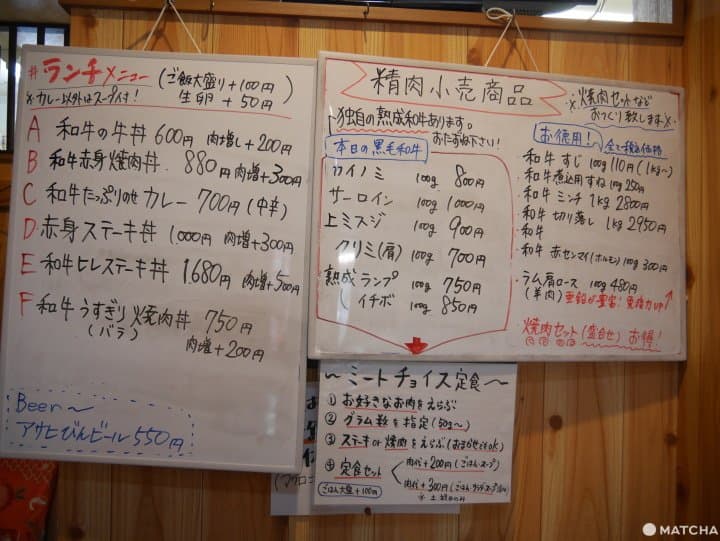 # ランチメニュー (ご飯大盛り+100円
生卵 +50円)
※カレー以外はスープ付!
A 和牛の牛丼 600円 肉増し+200円
B 和牛赤身焼肉丼. 880円 肉増+300円
C 和牛たっぷりのせカレー 700円 (中辛)
D 赤身ステーキ丼 1,000円 肉増+300円
E 和牛ヒレステーキ丼 1,680円 肉増+500円
F 和牛うすぎり焼肉丼 750円
(バラ) 肉増+200円
Beer〜
アサヒびんビール 550円
精肉小売商品
独自の熟成和牛あります。
おたずね下さい!
本日の黒毛和牛
カイノミ 100g 800円
サーロイン 100g 1000円
上ミスジ 100g 900円
クリミ(肩) 100g 700円
熟成ランプ 100g 750円
イチボ 100g 850円
※焼肉セットなど
おつくり致します※
お徳用! 全て税込価格
和牛 すじ 100g 110円 (1kg〜)
・和牛煮込用すね 100g 250円
・和牛 ミンチ 1kg 2800円
・和牛 切り落し 1kg 2950円
・和牛
・和牛 赤センマイ(ホルモン) 100g 300円
・ラム肩ロース 100g 480円
(羊肉) 亜鉛が豊富! 免疫力up↑
・焼肉セット(盛合せ) お得!
〜ミートチョイス定食〜
① お好きなお肉をえらぶ
② グラム数を指定 (50g〜)
③ ステーキor焼肉をえらぶ (おまかせもOK)
④ 定食セット
肉代+200円 (ごはん・スープ)
肉代+300円 (ごはん・サラダ・スープ
ごはん大盛+100円
MATCHA